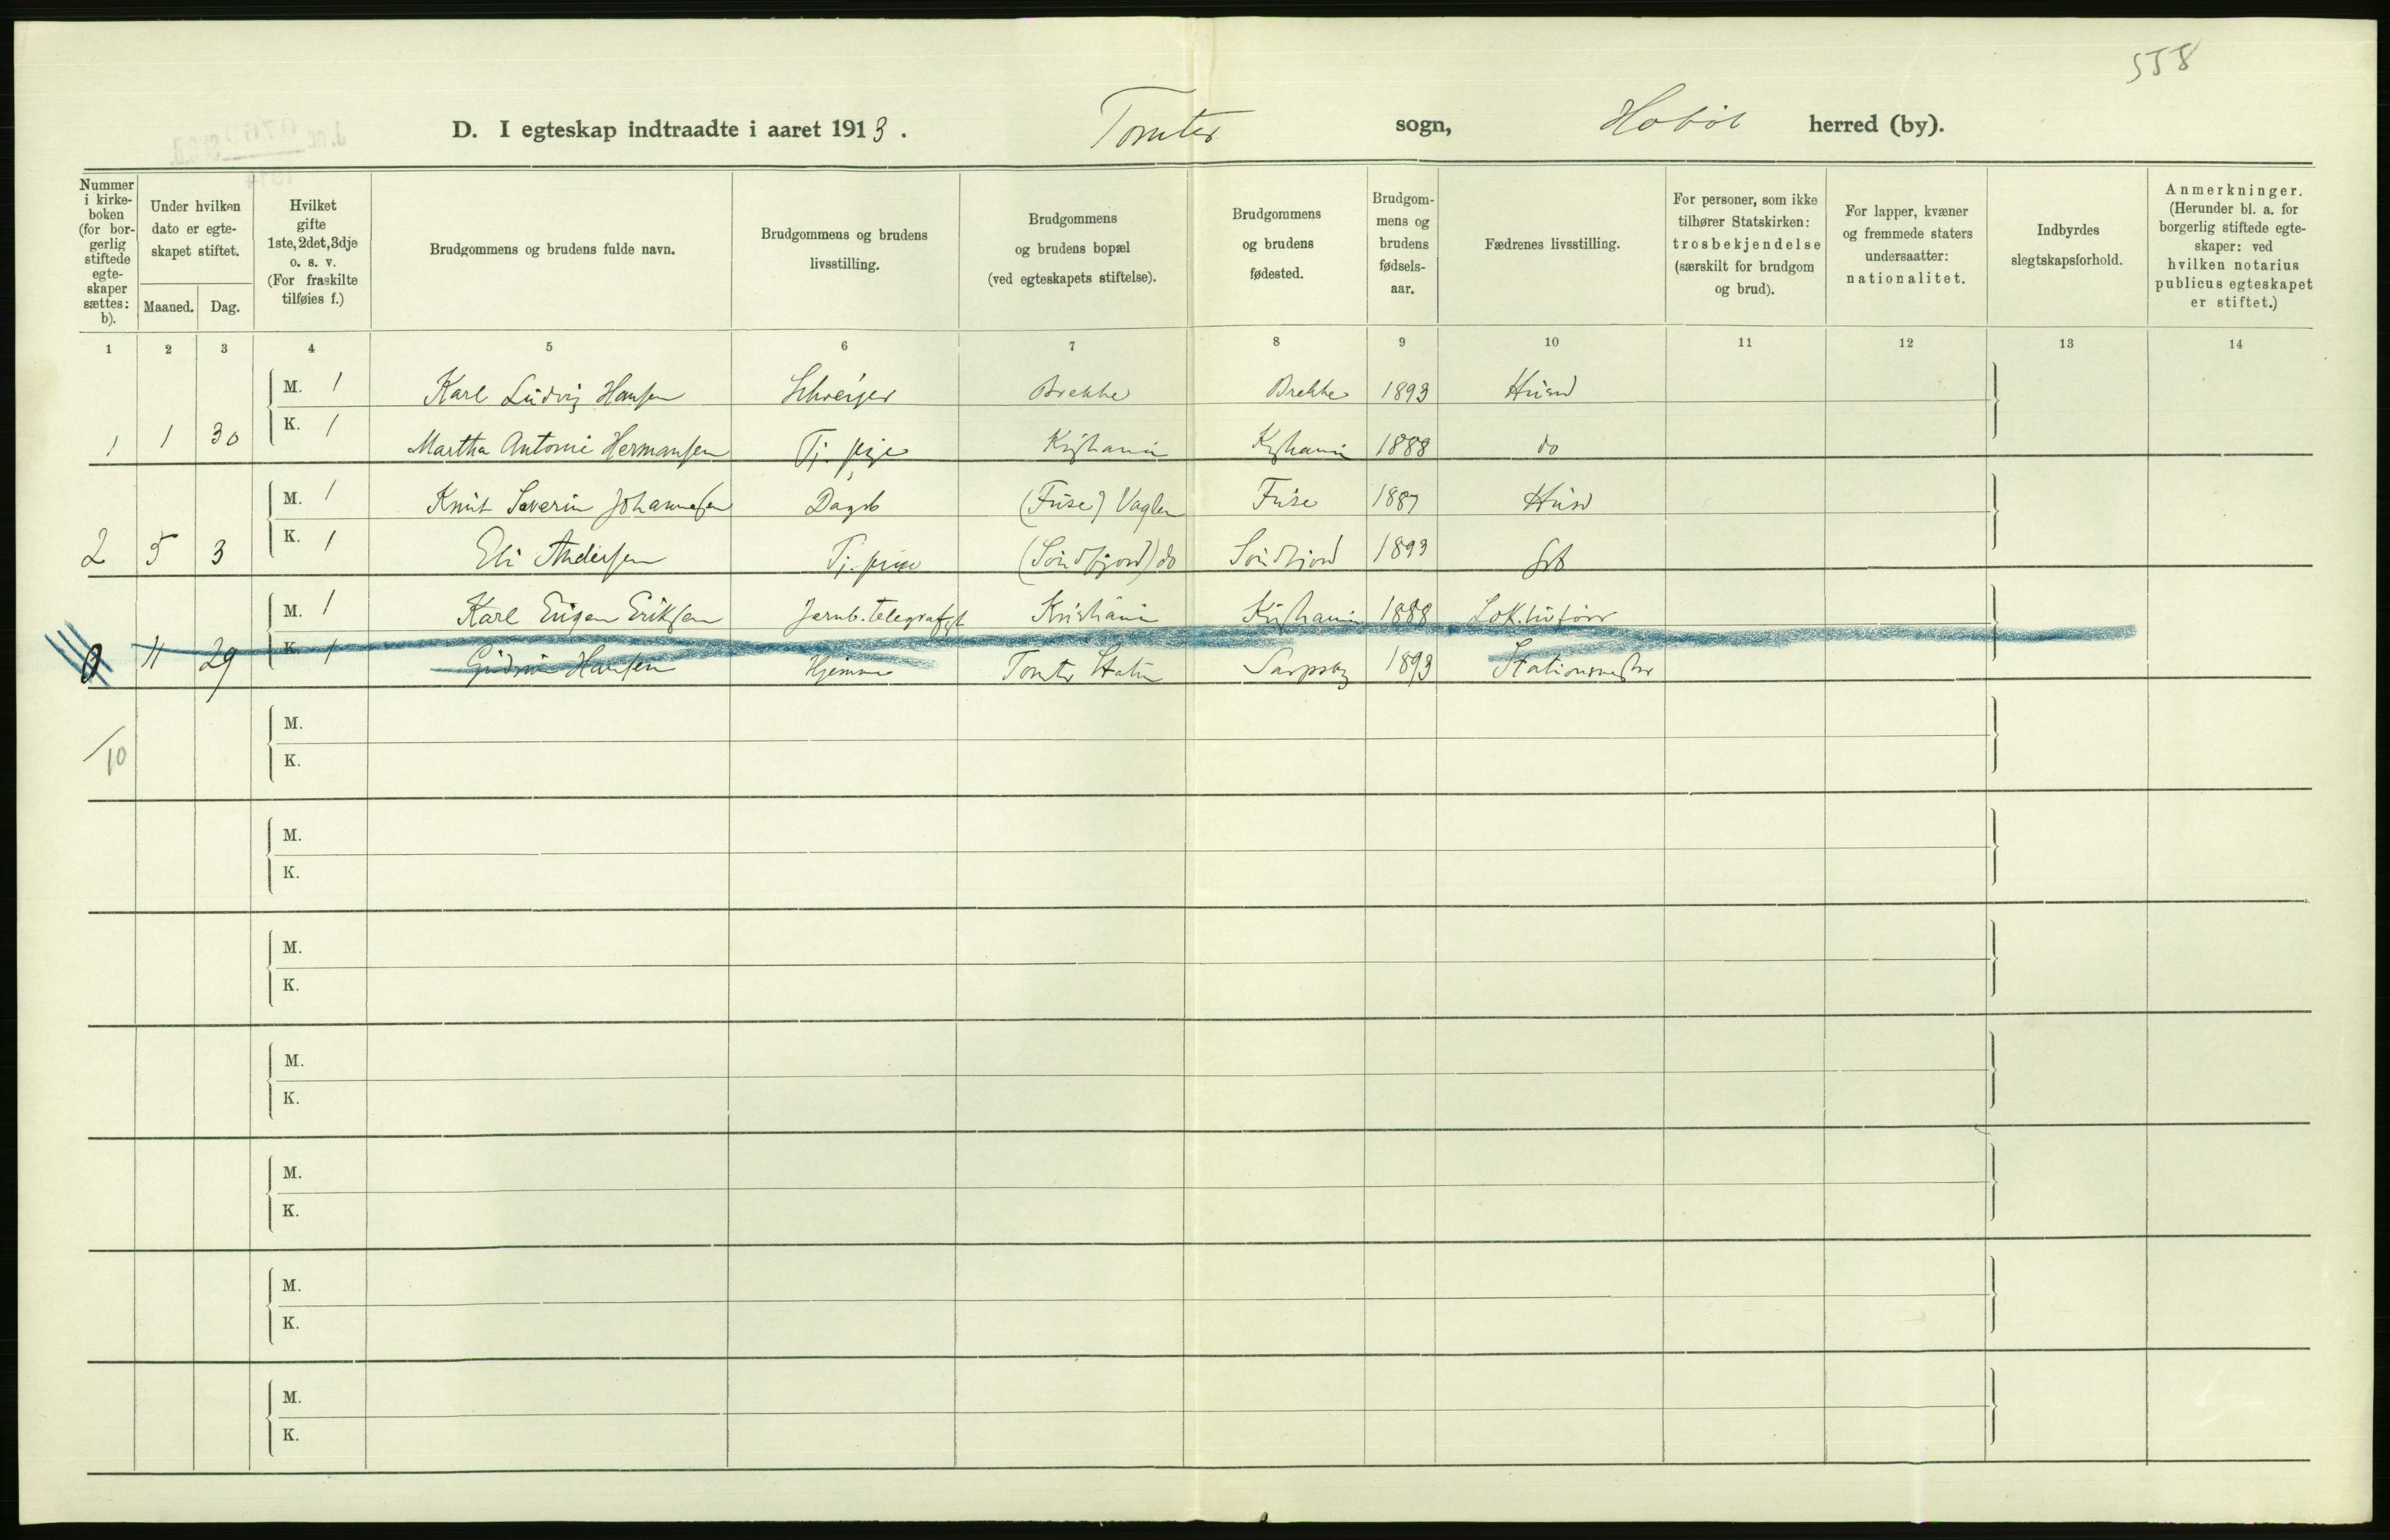 558
D. I egteskap indtraadte i aaret 1913. Tomter sogn, Hobøl herred (by).
Nummer i kirkeboken (for borgerlig stiftede egteskaper sættes: b).
Under hvilken dato er egteskapet stiftet.
Maaned. Dag.
Hvilket gifte 1ste, 2det, 3dje o. s. v. (For fraskilte tilføies f.)
Brudgommens og brudens fulde navn.
Brudgommens og brudens livsstilling.
Brudgommens og brudens bopæl (ved egteskapets stiftelse).
Brudgommens og brudens fødested.
Brudgommens og brudens fødselsaar.
Fædrenes livsstilling.
For personer, som ikke tilhører Statskirken: trosbekjendelse (særskilt for brudgom og brud).
For lapper, kvæner og fremmede staters undersaatter: nationalitet.
Indbyrdes slegtskapsforhold.
Anmerkninger. (Herunder bl. a. for borgerlig stiftede egteskaper: ved hvilken notarius publicus egteskapet er stiftet.)
1 2 3 4 5 6 7 8 9 10 11 12 13 14
M. 1 Karl Ludvig Hansen Brekke Brekke 1893 Husm
1 1 30 K. 1 Martha Antonie Hermansen Tj. pige Kristiania Kristiania 1888 do
M. 1 Knut Severin Johannesen Dagb (Fuse) Vaglen Fuse 1887 Husm
2 5 3 K. 1 Eli Andersen Tj. pige (Søndfjord) do Søndfjord 1893
M. 1 Karl Eugen Eriksen Jernb. telegrafist Kristiania Kristiania 1888
11 29 K. 1 Gudrun Hansen Hjemme Tomter Station Sarpsbg 1893 Stationsmester
/10
M.
K.
M.
K.
M.
K.
M.
K.
M.
K.
M.
K.
M.
K.